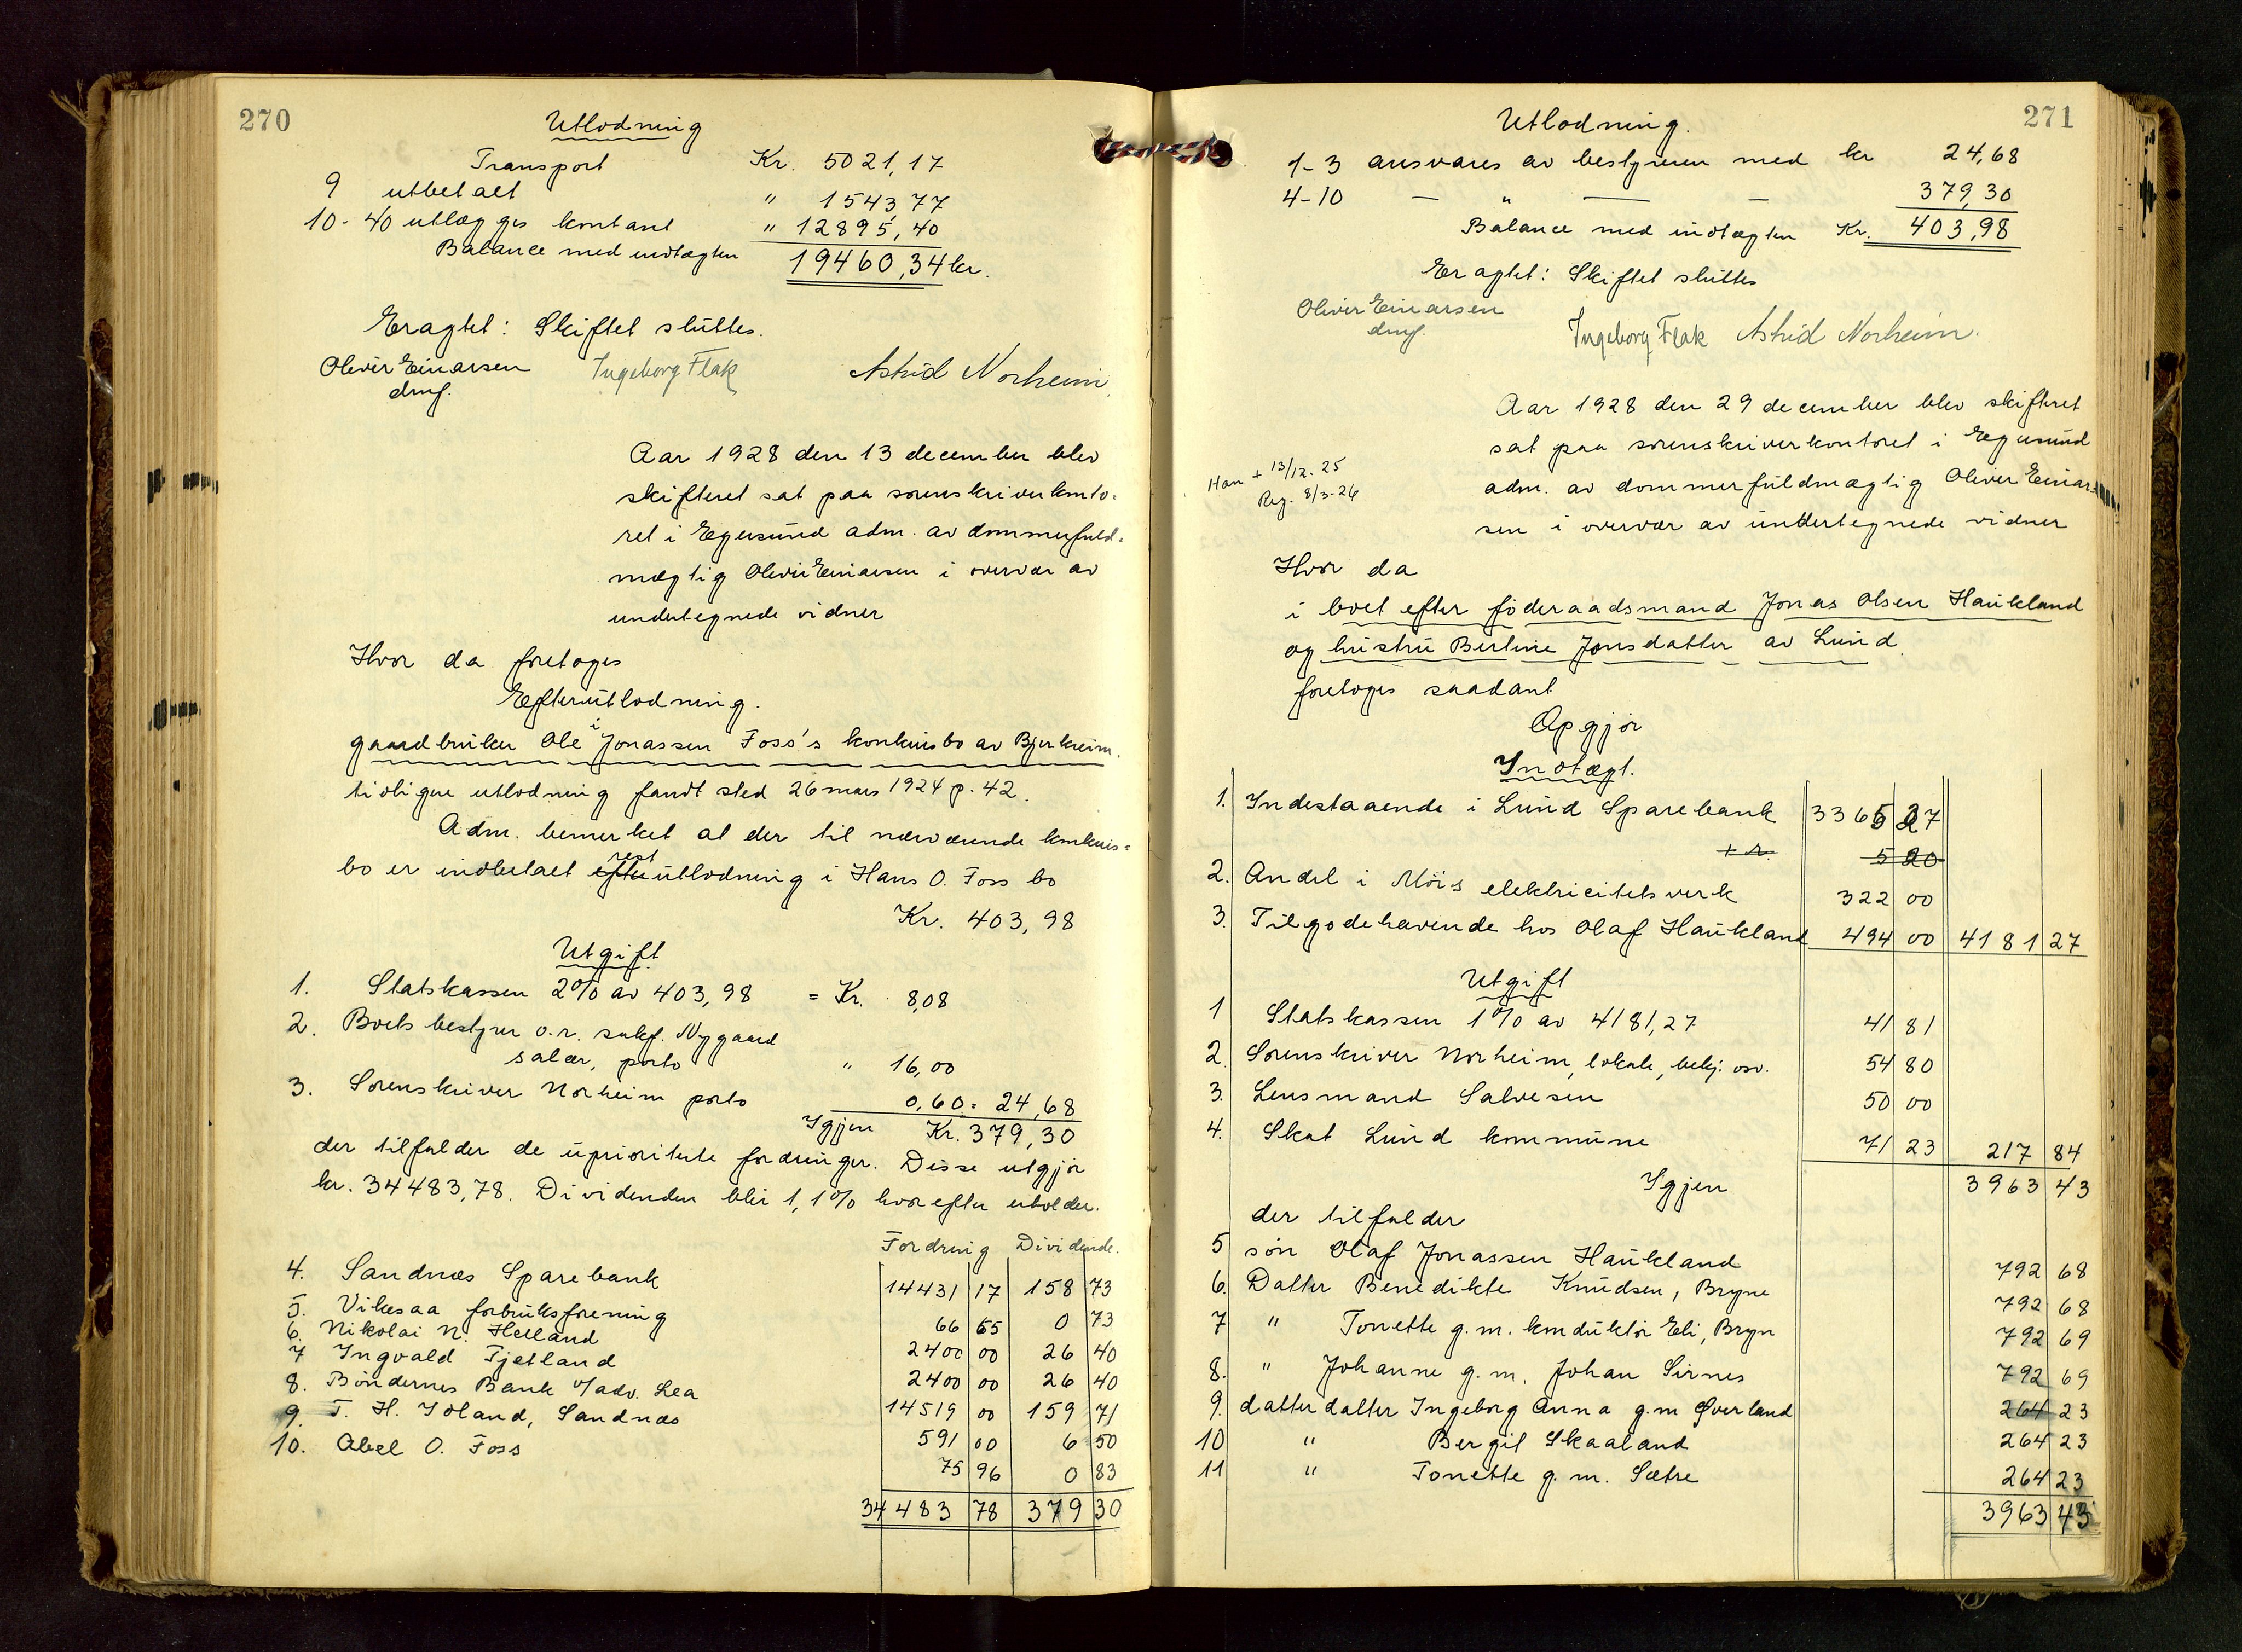 270
Utlodning
Transport Kr. 5021,17
9 utbetalt " 1543,77
10-40 utlægges kontant " 12895,40
Balance med indtægten 19460,34 kr.
Eragtet: Skiftet sluttes.
Oliver Einarsen Ingeborg Flak Astrid Norheim
dmf.
Aar 1928 den 13 december blev
skifteret sat paa sorenskriverkonto=
ret i Egersund adm. av dommerfuld=
mægtig Oliver Einarsen i overvær av
undertegnede vidner
Hvor da foretoges
Efterutlodning.
i
gaardbruker Ole Jonassen Foss's konkursbo av Bjerkreim.
tidligere utlodning fandt sted 26 mars 1924 p. 42.
Adm. bemerket at der til nærværende konkurs=
rest
bo er indbetalt efterutlodning i Hans O. Foss bo
Kr. 403,98
Utgift
1. Statskassen 2% av 403,98 = Kr. 8,08
2. Boets bestyrer o.r. sakf. Nygaard
salær, porto " 16,00
3. Sorenskriver Norheim porto 0,60 = 24,68
Igjen Kr. 379,30
der tilfalder de uprioriterte fordringer. Disse utgjør
kr. 34483,78. Dividenden blir 1,1% hvorefter utlodes.
Fordring Dividende.
4. Sandnæs Sparebank 14431 17 158 73
5. Vikesaa forbruksforening 66 65 0 73
6. Nikolai N. Helland 2400 00 26 40
7 Ingvald Tjetland 2400 00 26 40
8. Bøndernes Bank v/adv. Lea 14519 00 159 71
9. T. H. Idland, Sandnæs 591 00 6 50
10. Abel O. Foss 75 96 0 83
34483 78 379 30
271
Utlodning.
1-3 ansvares av bestyreren med kr 24,68
4-10 — " — — 379,30
Balance med indtægten Kr. 403,98
Eragtet: Skiftet sluttes
Oliver Einarsen
dmf.
Ingeborg Flak Astrid Norheim.
Aar 1928 den 29 december blev skifteret
sat paa sorenskriverkontoret i Egersund
Han + 13/12.25
Reg. 8/3-26
adm. av dommerfuldmægtig Oliver Einar=
sen i overvær av undertegnede vidner
Hvor da
i boet efter føderaadsmand Jonas Olsen Haukland
og hustru Bertine Jonsdatter av Lund
foretoges saadant
Opgjør
Indtægt.
1. Indestaaende i Lund Sparebank 3365 27
+ r. 5 20
2. Andel i Moi's elektricitetsverk 322 00
3. Tilgodehavende hos Olaf Haukland 494 00 4181 27
Utgift
1 Statskassen 1% av 4181,27 41 81
2. Sorenskriver Norheim, lokale, bekj. osv. 54 80
3. Lensmand Salvesen 50 00
4. Skat Lund kommune 71 23 217 84
Igjen 3963 43
der tilfalder
5 søn Olaf Jonassen Haukland 792 68
6. Datter Benedikte Knudsen, Bryne 792 68
7 " Tonette g.m. konduktør Eli, Bryn 792 69
8. " Johanne g.m. Johan Sirnes 792 69
9. datterdatter Ingeborg Anna g.m Øverland 264 23
10 " Bergit Skaaland 264 23
11 " Tonette g.m. Sætre 264 23
3963 43